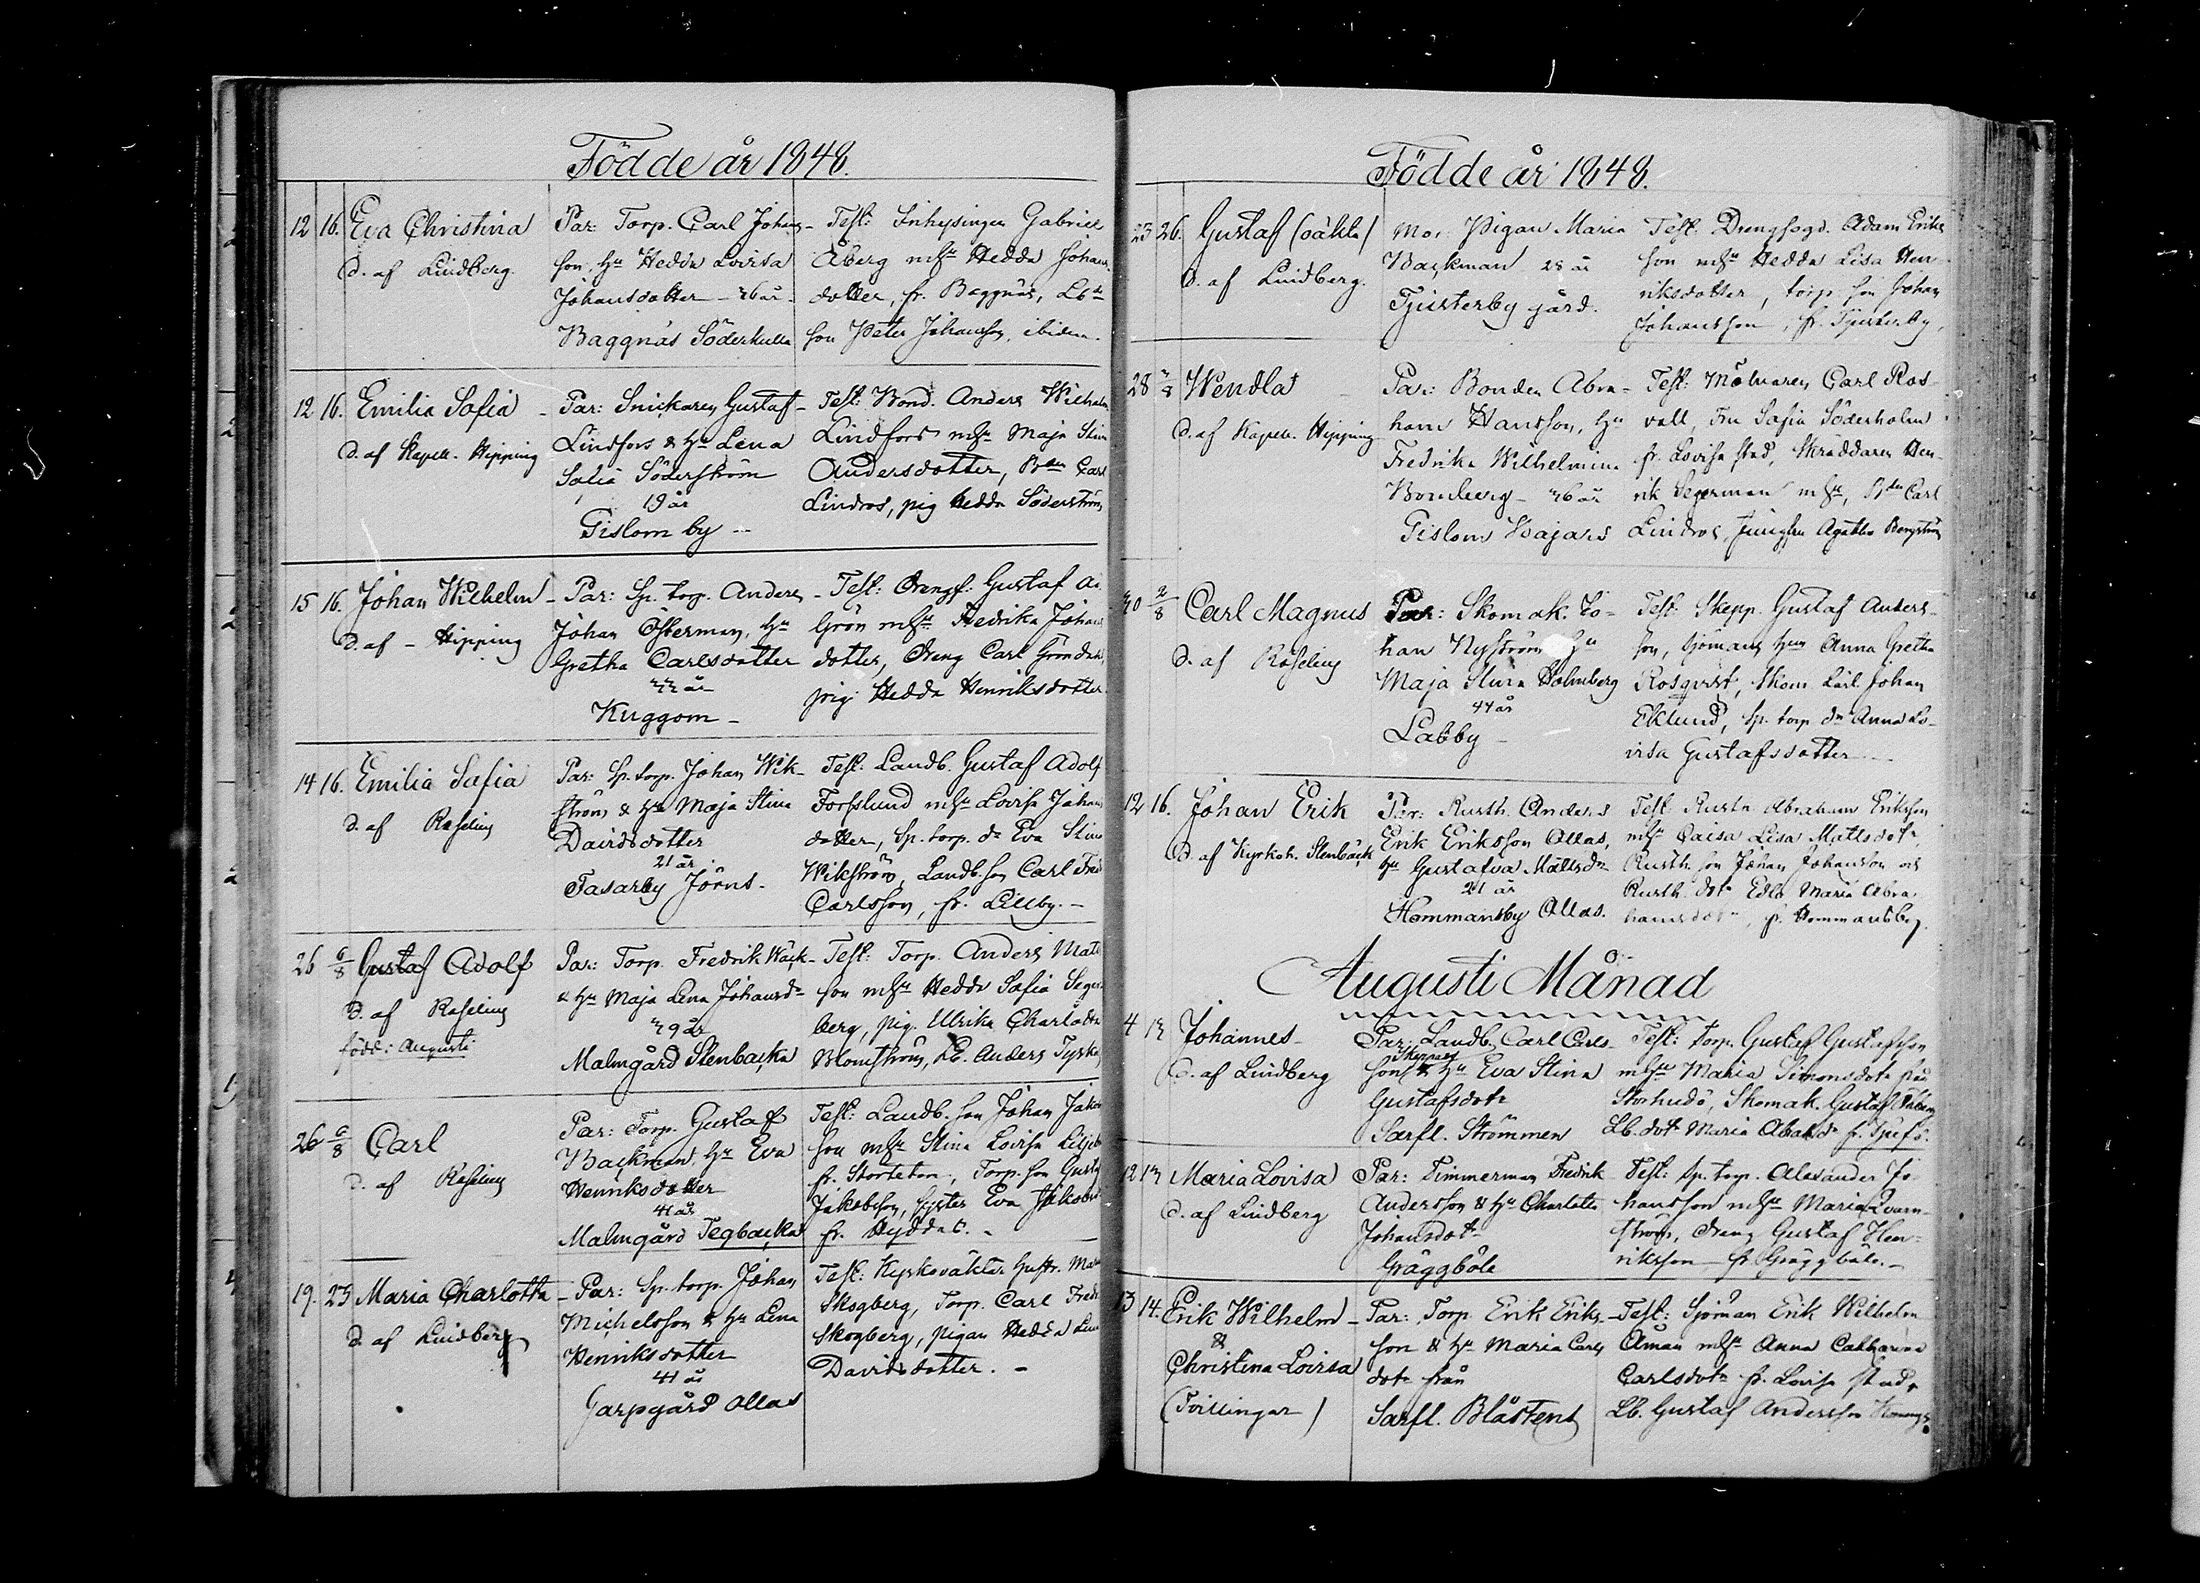 Födde år 1848.
12 16. Eva Christina
d. af Lindberg.
Par: Torp. Carl Johans-
son, hu Hedda Lovisa
Johansdotter - 26 år -
Baggnäs Söderkulla
Test: Inhysingen Gabriel
Åberg m hu Hedda Johans-
dotter, fr. Baggnäs, Lb
son Peter Johansson, ibidem.
12 16. Emilia Sofia -
d. af Kapell. Hipping
Par: Snickaren Gustaf
Lindfors & hu Lena
Sofia Söderström
19 år
Gislom by -
Test: Bond. Anders Wilhelm
Lindfors m hu Maja Stina
Andersdotter, Bden Carl
Lindros, pig Hedda Söderström
15 16. Johan Wilhelm -
d. af - Hipping
Par: Sp. torp. Anders
Johan Österman, hu
Gretha Carlsdotter
22 år
Kuggom -
Test: Drengf. Gustaf
Grön m hu Fredrika Johans
dotter, Dreng Carl
pig Hedda Henriksdotter
14 16. Emilia Safia
d. af Roseling
Par: Sp. torp. Johan Wik-
ström & hu Maja Stina
Davidsdotter
21 år
Tasarby Jörns -
Test: Landb. Gustaf Adolf
Forsslund m hu Lovisa Johans
dotter, Sp. torp. dr Eva Stina
Wikström, Landb. son Carl Fred
Carlsson, fr. Lillby. -
26 6/8 Gustaf Adolf
d. af Roseling
född i Augusti
Par: Torp. Fredrik Wäck-
& hu Maja Lena Johansdr
29 år
Malmgård Stenbacka
Test: Torp. Anders Mats
son m hu Hedda Sofia Seger
berg, pig. Ulrika Charlotta
Blomström, Lb. Anders
26 6/8 Carl
d. af Roseling
Par: Torp. Gustaf
Backman, hu Eva
Henriksdotter
41 år
Malmgård Tegbacka
Test: Landb. son Johan Jakob
son m hu Stina Lovisa
fr. Storteten, Torp. son Gustaf
Jakobsson, Syster Eva Jakobsd
fr. Hyddas. -
19. 23 Maria Charlotta
d. af Lindberg
- Par: Sp. torp. Johan
Michelsson & hu Lena
Henriksdotter
41 år
Garpgård Ollas
Test: Kyrkoväktar hustr. Maria
Skogberg, Torp. Carl Fredr
Skogberg, pigan Hedda Lena
Davidsdotter. -
Födde år 1848.
23 26. Gustaf (oäkta)
d. af Lindberg.
Mor: Pigan Maria
Backman 28 år
Tjusterby gård.
Test. Drengfogd. Adam Eriks
son m hu Hedda Lisa Hen-
riksdotter, torp. son Johan
Johansson, fr. Tjusterby,
28 2/8 Wendla
d. af Kapell. Hipping
Par: Bonden Abra-
ham Hansson, hu
Fredrika Wilhelmina
Bomberg - 26 år
Gislom Kajars
Test: Mölnaren Carl Ros-
vall, Fru Sofia Söderholm
fr. Lovisa stad, Skräddaren Hen-
rik Segerman m hu, Bden Carl
Lindros, Jungfru Agatha Bergström
30 2/8 Carl Magnus
d. af Roseling
Par: Skomak. Jo-
han Nyström hu
Maja Stina Holmberg
44 år
Labby -
Test: Skepp. Gustaf Anders-
son, Sjöman, hu Anna Gretha
Rosqvist, Skom. Lärl. Johan
Eklund, Sp. torp. dr Anna Lo-
visa Gustafsdotter. -
12 16. Johan Erik
d. af Kyrkoh. Stenbäck
Par: Rusth. Anders
Erik Eriksson Ollas,
hu Gustafva Mattsdr
21 år
Hommansby Ollas.
Test: Rusth. Abraham Eriksson
m hu Caisa Lisa Mattsdotr,
Rusth. son Johan Johansson och
Rusth. dotr Edla Maria Abra-
hamsdotr, fr. Hommansby.
Augusti Månad
4 13 Johannes -
d. af Lindberg
Par: Landb. Carl Carls-
Skeppars
son & hu Eva Stina
Gustafsdotr
Sarfl. Strömmen
Test: torp. Gustaf Gustafsson
m hu Maria Simonsdotr från
Skomak. Gustaf
Lb. dotr Maria
12 13 Maria Lovisa
d. af Lindberg
Par: Timmerman Fredrik
Andersson & hu Charlotta
Johansdotr
Gräggböle
Test: Sp. torp. Alexander Jo-
hansson m hu Maria Qvarn-
ström, Dreng Gustaf Hen-
riksson fr. Gräggböle. -
13 14. Erik Wilhelm
&
Christina Lovisa
(Tvillingar)
- Par: Torp. Erik Eriks-
son & hu Maria Carls
dotr från
Sarfl. Blåstens
Test: Sjöman Erik Wilhelm
Åman m hu Anna Catharina
Carlsdotr fr. Lovisa stad,
Lb. Gustaf Andersson